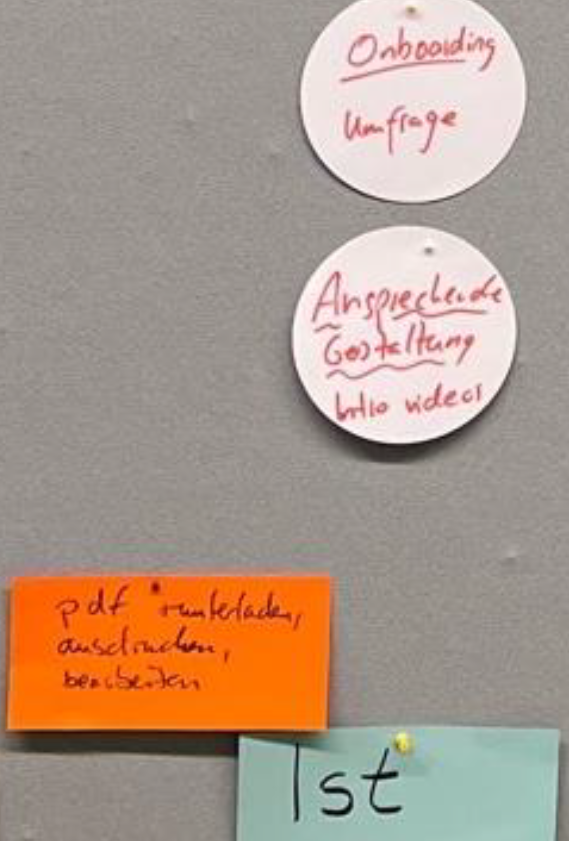 Onboarding
Umfrage
Ansprechende
Gestaltung
Intro videos
pdf runterladen,
ausdrucken,
bearbeiten
Ist